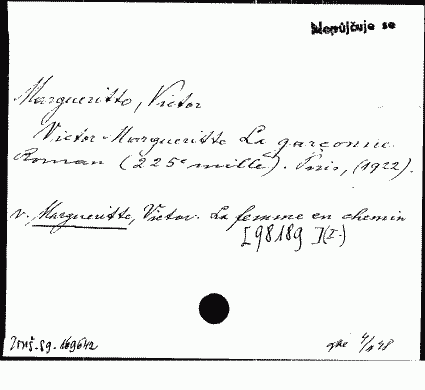 Nepůjčuje se
Margueritte, Victor
Victor Margueritte La garçonne.
Roman (225e mille). Paris, (1922).
v. Margueritte, Victor. La femme en chemin
[98189](I.)
Zraš. sg. 169642
4/1 48